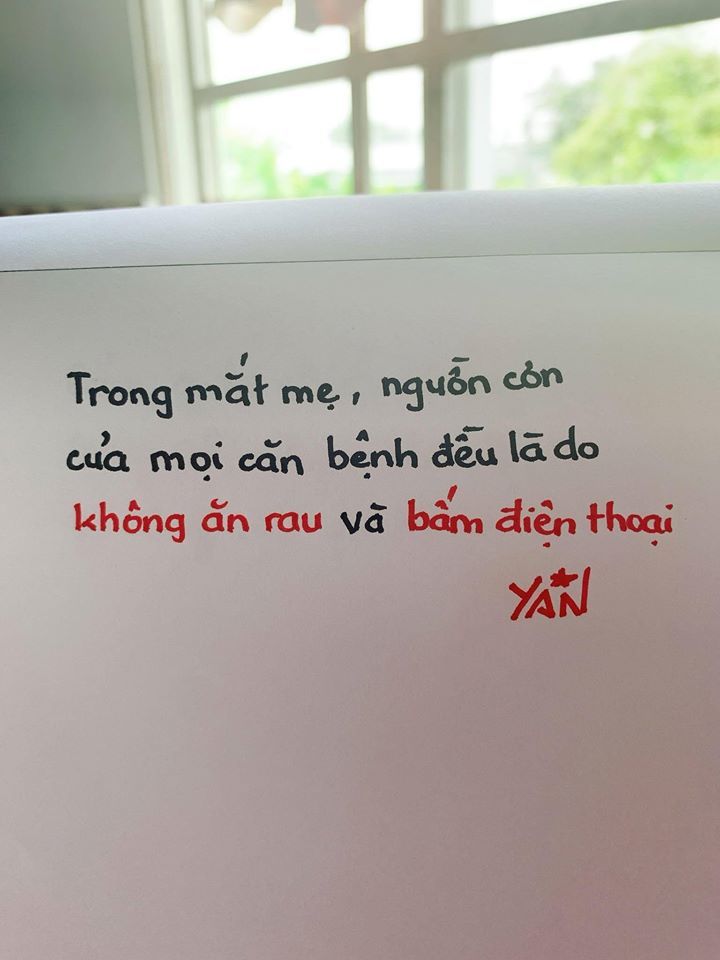 Trong mắt mẹ, nguồn cơn
của mọi căn bệnh đều là do
không ăn rau và bấm điện thoại
YAN